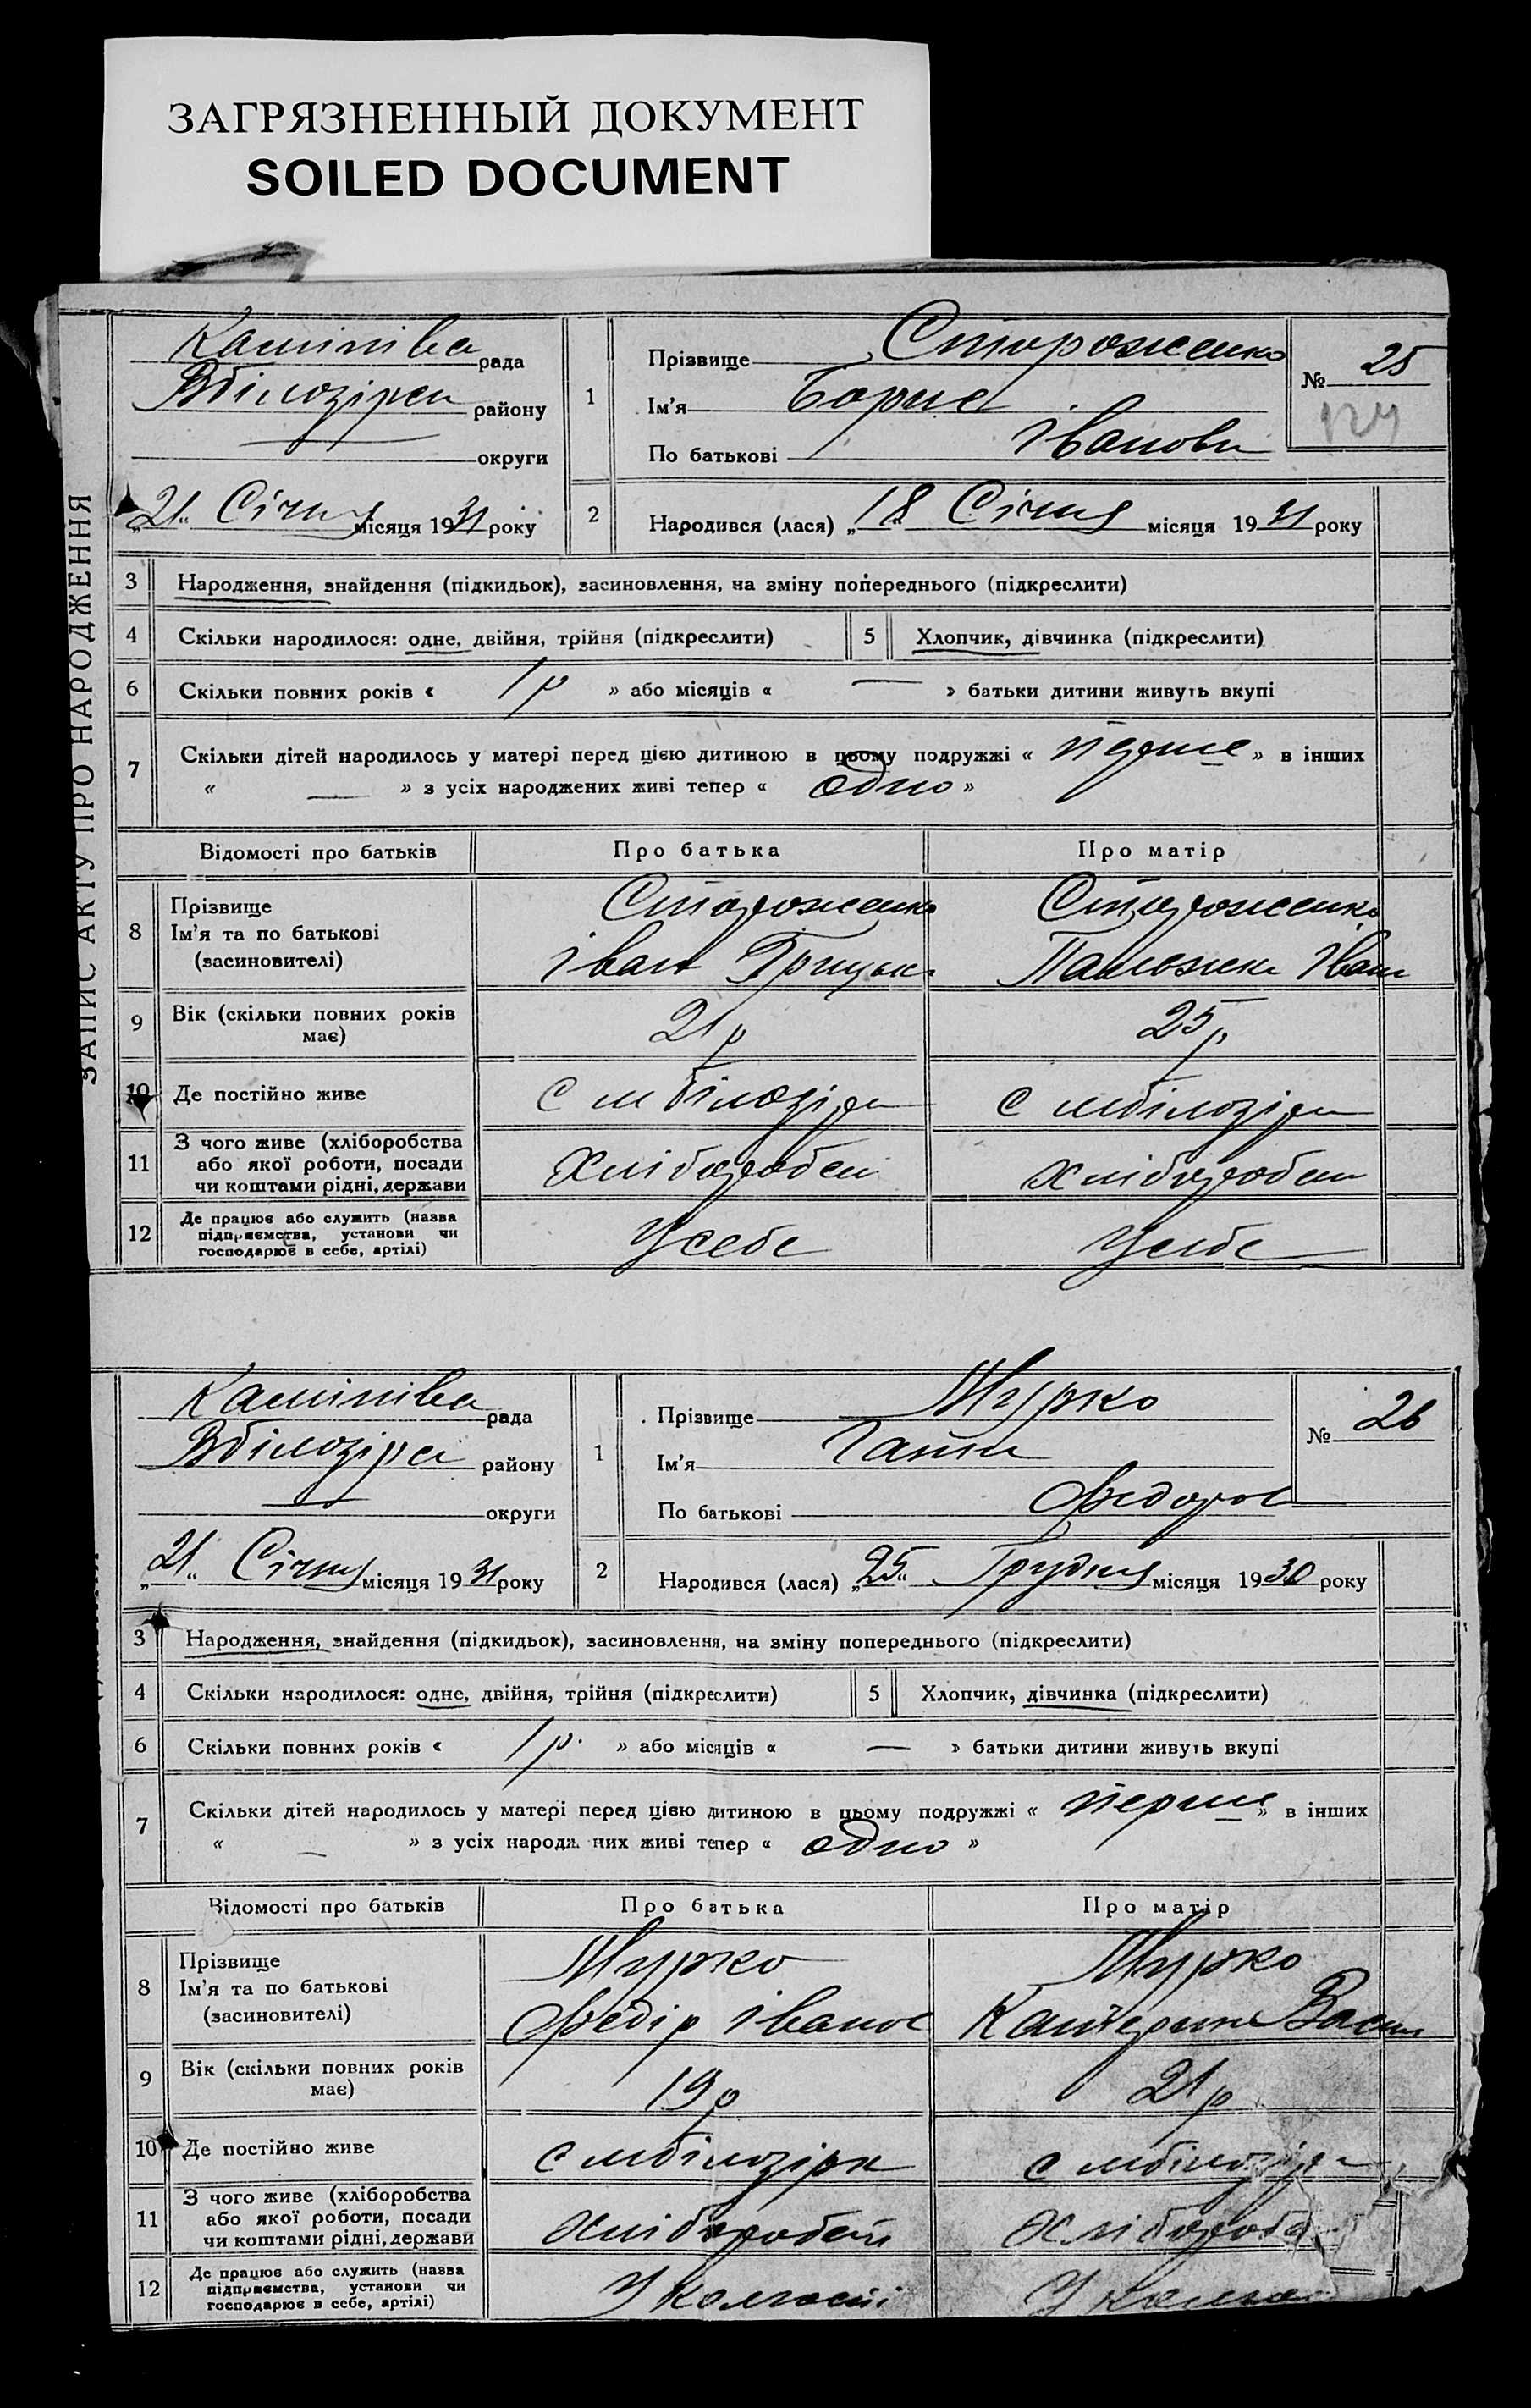 ЗАГРЯЗНЕННЫЙ ДОКУМЕНТ
SOILED DOCUMENT
ЗАПИС АКТУ ПРО НАРОДЖЕННЯ
рада
Вбілозірки району
— округи
„21“ Січня місяця 1931 року
1
Прізвище Стороженко
Ім'я Борис
По батькові Іванови
№ 25
124
2
Народився (лася) „18“ Січня місяця 1931 року
3 Народження, знайдення (підкидьок), засиновлення, на зміну попереднього (підкреслити)
4 Скільки народилося: одне, двійня, трійня (підкреслити) 5 Хлопчик, дівчинка (підкреслити)
6 Скільки повних років « 1 р » або місяців « — » батьки дитини живуть вкупі
7 Скільки дітей народилось у матері перед цією дитиною в цьому подружжі « перше » в інших
« — » з усіх народжених живі тепер « одно »
Відомості про батьків Про батька Про матір
8 Прізвище Стороженко Стороженко
Ім'я та по батькові Іван Грицьк Іван
(засиновителі)
9 Вік (скільки повних років має) 21 р 25 р
10 Де постійно живе с мбілозірки с мбілозірки
11 З чого живе (хліборобства
або якої роботи, посади
чи коштами рідні, держави хлібороб хлібороб
12 Де працює або служить (назва
підприємства, установи чи
господарює в себе, артілі) Усебе Усебе
рада
Вбілозірки району
— округи
„21“ Січня місяця 1931 року
1
Прізвище Мурко
Ім'я Ганна
По батькові Федоров
№ 26
2
Народився (лася) „25“ Грудня місяця 1930 року
3 Народження, знайдення (підкидьок), засиновлення, на зміну попереднього (підкреслити)
4 Скільки народилося: одне, двійня, трійня (підкреслити) 5 Хлопчик, дівчинка (підкреслити)
6 Скільки повних років « 1 р. » або місяців « — » батьки дитини живуть вкупі
7 Скільки дітей народилось у матері перед цією дитиною в цьому подружжі « перше » в інших
« — » з усіх народж них живі тепер « одно »
Відомості про батьків Про батька Про матір
8 Прізвище Мурко Мурко
Ім'я та по батькові Федір Іванов Катерина Васи
(засиновителі)
9 Вік (скільки повних років має) 19 р 21 р
10 Де постійно живе с мбілозірки с мбілозірки
11 З чого живе (хліборобства
або якої роботи, посади
чи коштами рідні, держави хлібороб хлібороб
12 Де працює або служить (назва
підприємства, установи чи
господарює в себе, артілі) У колгоспі У колгос